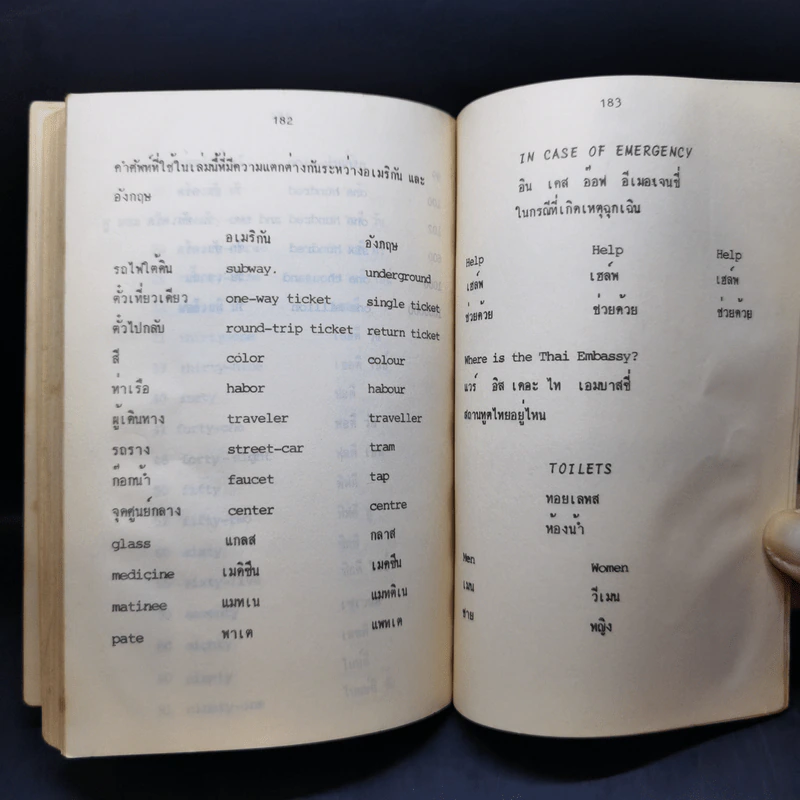 182
คำศัพท์ที่ใช้ในเล่มนี้ที่มีความแตกต่างกันระหว่างอเมริกัน และ
อังกฤษ
อเมริกัน อังกฤษ
รถไฟใต้ดิน subway. underground
ตั๋วเที่ยวเดียว one-way ticket single ticket
ตั๋วไปกลับ round-trip ticket return ticket
สี color colour
ท่าเรือ habor habour
ผู้เดินทาง traveler traveller
รถราง street-car tram
ก๊อกน้ำ faucet tap
จุดศูนย์กลาง center centre
glass แกลส กลาส
medicine เมดิซีน เมดซีน
matinee แมทเน แมทติเน
pate พาเต แพทเต
183
IN CASE OF EMERGENCY
อิน เคส อ๊อฟ อีเมอเจนซี่
ในกรณีที่เกิดเหตุฉุกเฉิน
Help Help Help
เฮล์พ เฮล์พ เฮล์พ
ช่วยด้วย ช่วยด้วย ช่วยด้วย
Where is the Thai Embassy?
แวร์ อิส เดอะ ไท เอมบาสซี่
สถานทูตไทยอยู่ไหน
TOILETS
ทอยเลทส
ห้องน้ำ
Men Women
เมน วีเมน
ชาย หญิง